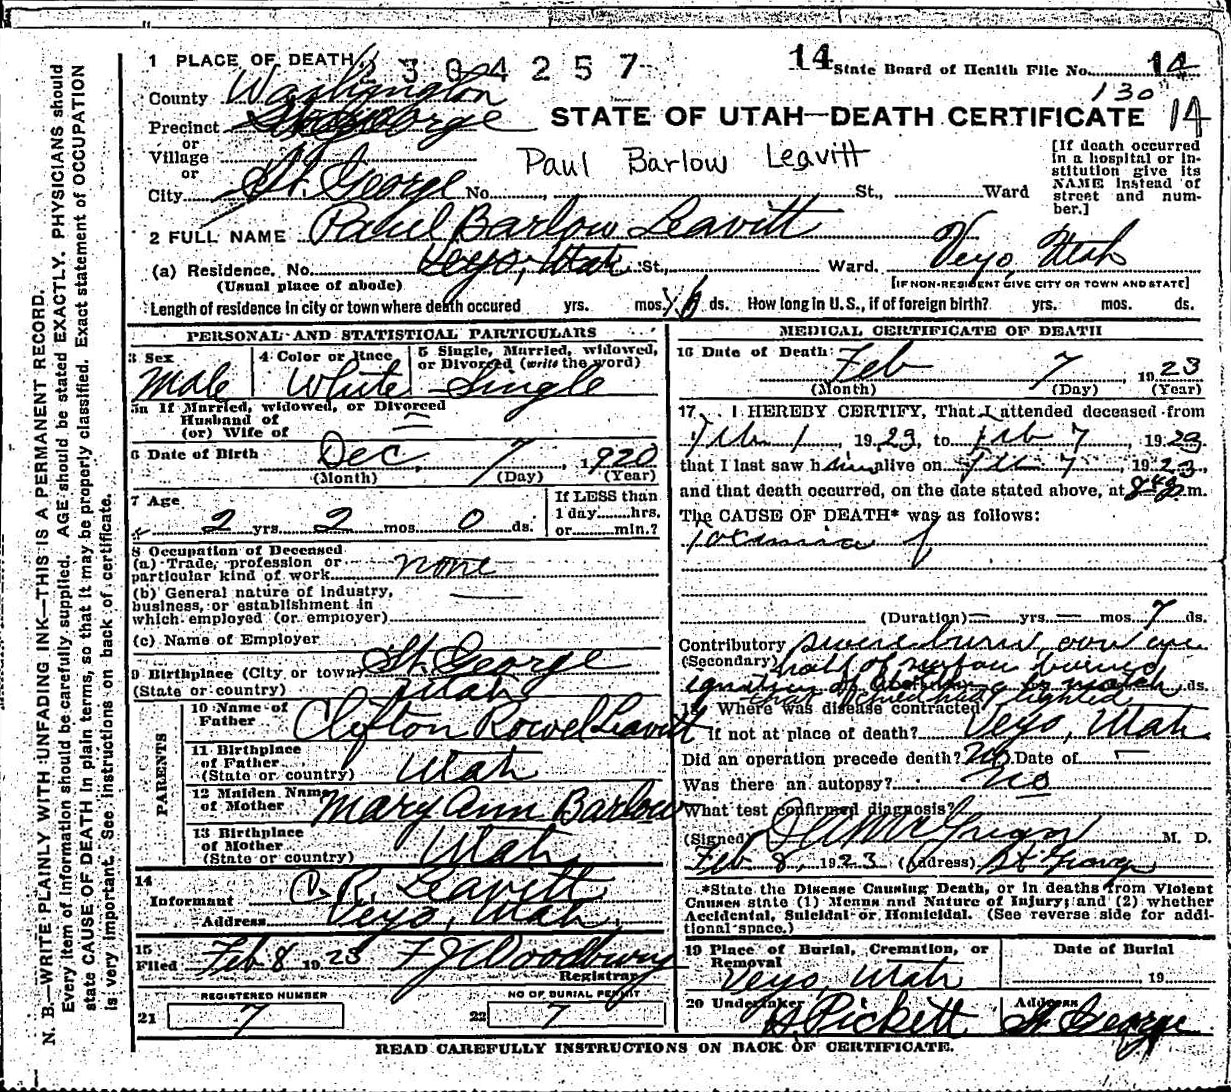 1 PLACE OF DEATH
2304257
14 State Board of Health File No. 14
130
County Washington
STATE OF UTAH—DEATH CERTIFICATE 14
Precinct St. George
or
Village
or
City St. George No. St., Ward
Paul Barlow Leavitt
[If death occurred
in a hospital or in-
stitution give its
NAME instead of
street and num-
ber.]
2 FULL NAME Paul Barlow Leavitt
(a) Residence. No. Veyo, Utah St., Ward. Veyo, Utah
(Usual place of abode) [IF NON-RESIDENT GIVE CITY OR TOWN AND STATE]
Length of residence in city or town where death occured yrs. mos. 6 ds. How long in U.S., if of foreign birth? yrs. mos. ds.
PERSONAL AND STATISTICAL PARTICULARS
3 Sex
Male
4 Color or Race
White
5 Single, Married, widowed,
or Divorced (write the word)
Single
5a If Married, widowed, or Divorced
Husband of
(or) Wife of
6 Date of Birth Dec. 7, 1920
(Month) (Day) (Year)
7 Age
2 yrs. 2 mos. 0 ds.
If LESS than
1 day hrs.
or min.?
8 Occupation of Deceased
(a) Trade, profession or
particular kind of work none
(b) General nature of industry,
business, or establishment in
which employed (or employer)
(c) Name of Employer
9 Birthplace (City or town) St. George
(State or country) Utah
PARENTS
10 Name of
Father Clifton Rowel Leavitt
11 Birthplace
of Father
(State or country) Utah
12 Maiden Name
of Mother Mary Ann Barlow
13 Birthplace
of Mother
(State or country) Utah
14
Informant C. R. Leavitt
Address Veyo, Utah
15
Filed Feb 8 1923 F J Woodbury
Registrar
REGISTERED NUMBER
21 7
NO OF BURIAL PERMIT
22 7
MEDICAL CERTIFICATE OF DEATH
16 Date of Death: Feb 7 1923
(Month) (Day) (Year)
17 I HEREBY CERTIFY, That I attended deceased from
Feb 1, 1923, to Feb 7, 1923
that I last saw him alive on Feb 7, 1923,
and that death occurred, on the date stated above, at m.
The CAUSE OF DEATH* was as follows:
Toxemia of
(Duration) yrs. mos. 7 ds.
Contributory severe burns, over one
(Secondary) half of surface burned
ignation of by match ds.
lighted
18 Where was disease contracted
If not at place of death? Veyo, Utah
Did an operation precede death? No Date of
Was there an autopsy? No
What test confirmed diagnosis?
(Signed) M. D.
Feb 8, 1923 (Address) St George
*State the Disease Causing Death, or in deaths from Violent
Causes state (1) Means and Nature of Injury; and (2) whether
Accidental, Suicidal or Homicidal. (See reverse side for addi-
tional space.)
19 Place of Burial, Cremation, or
Removal
Veyo, Utah
Date of Burial
19
20 Undertaker
Pickett
Address
St George
READ CAREFULLY INSTRUCTIONS ON BACK OF CERTIFICATE.
N. B.—WRITE PLAINLY WITH UNFADING INK—THIS IS A PERMANENT RECORD.
Every item of information should be carefully supplied. AGE should be stated EXACTLY. PHYSICIANS should
state CAUSE OF DEATH in plain terms, so that it may be properly classified. Exact statement of OCCUPATION
is very important. See instructions on back of certificate.